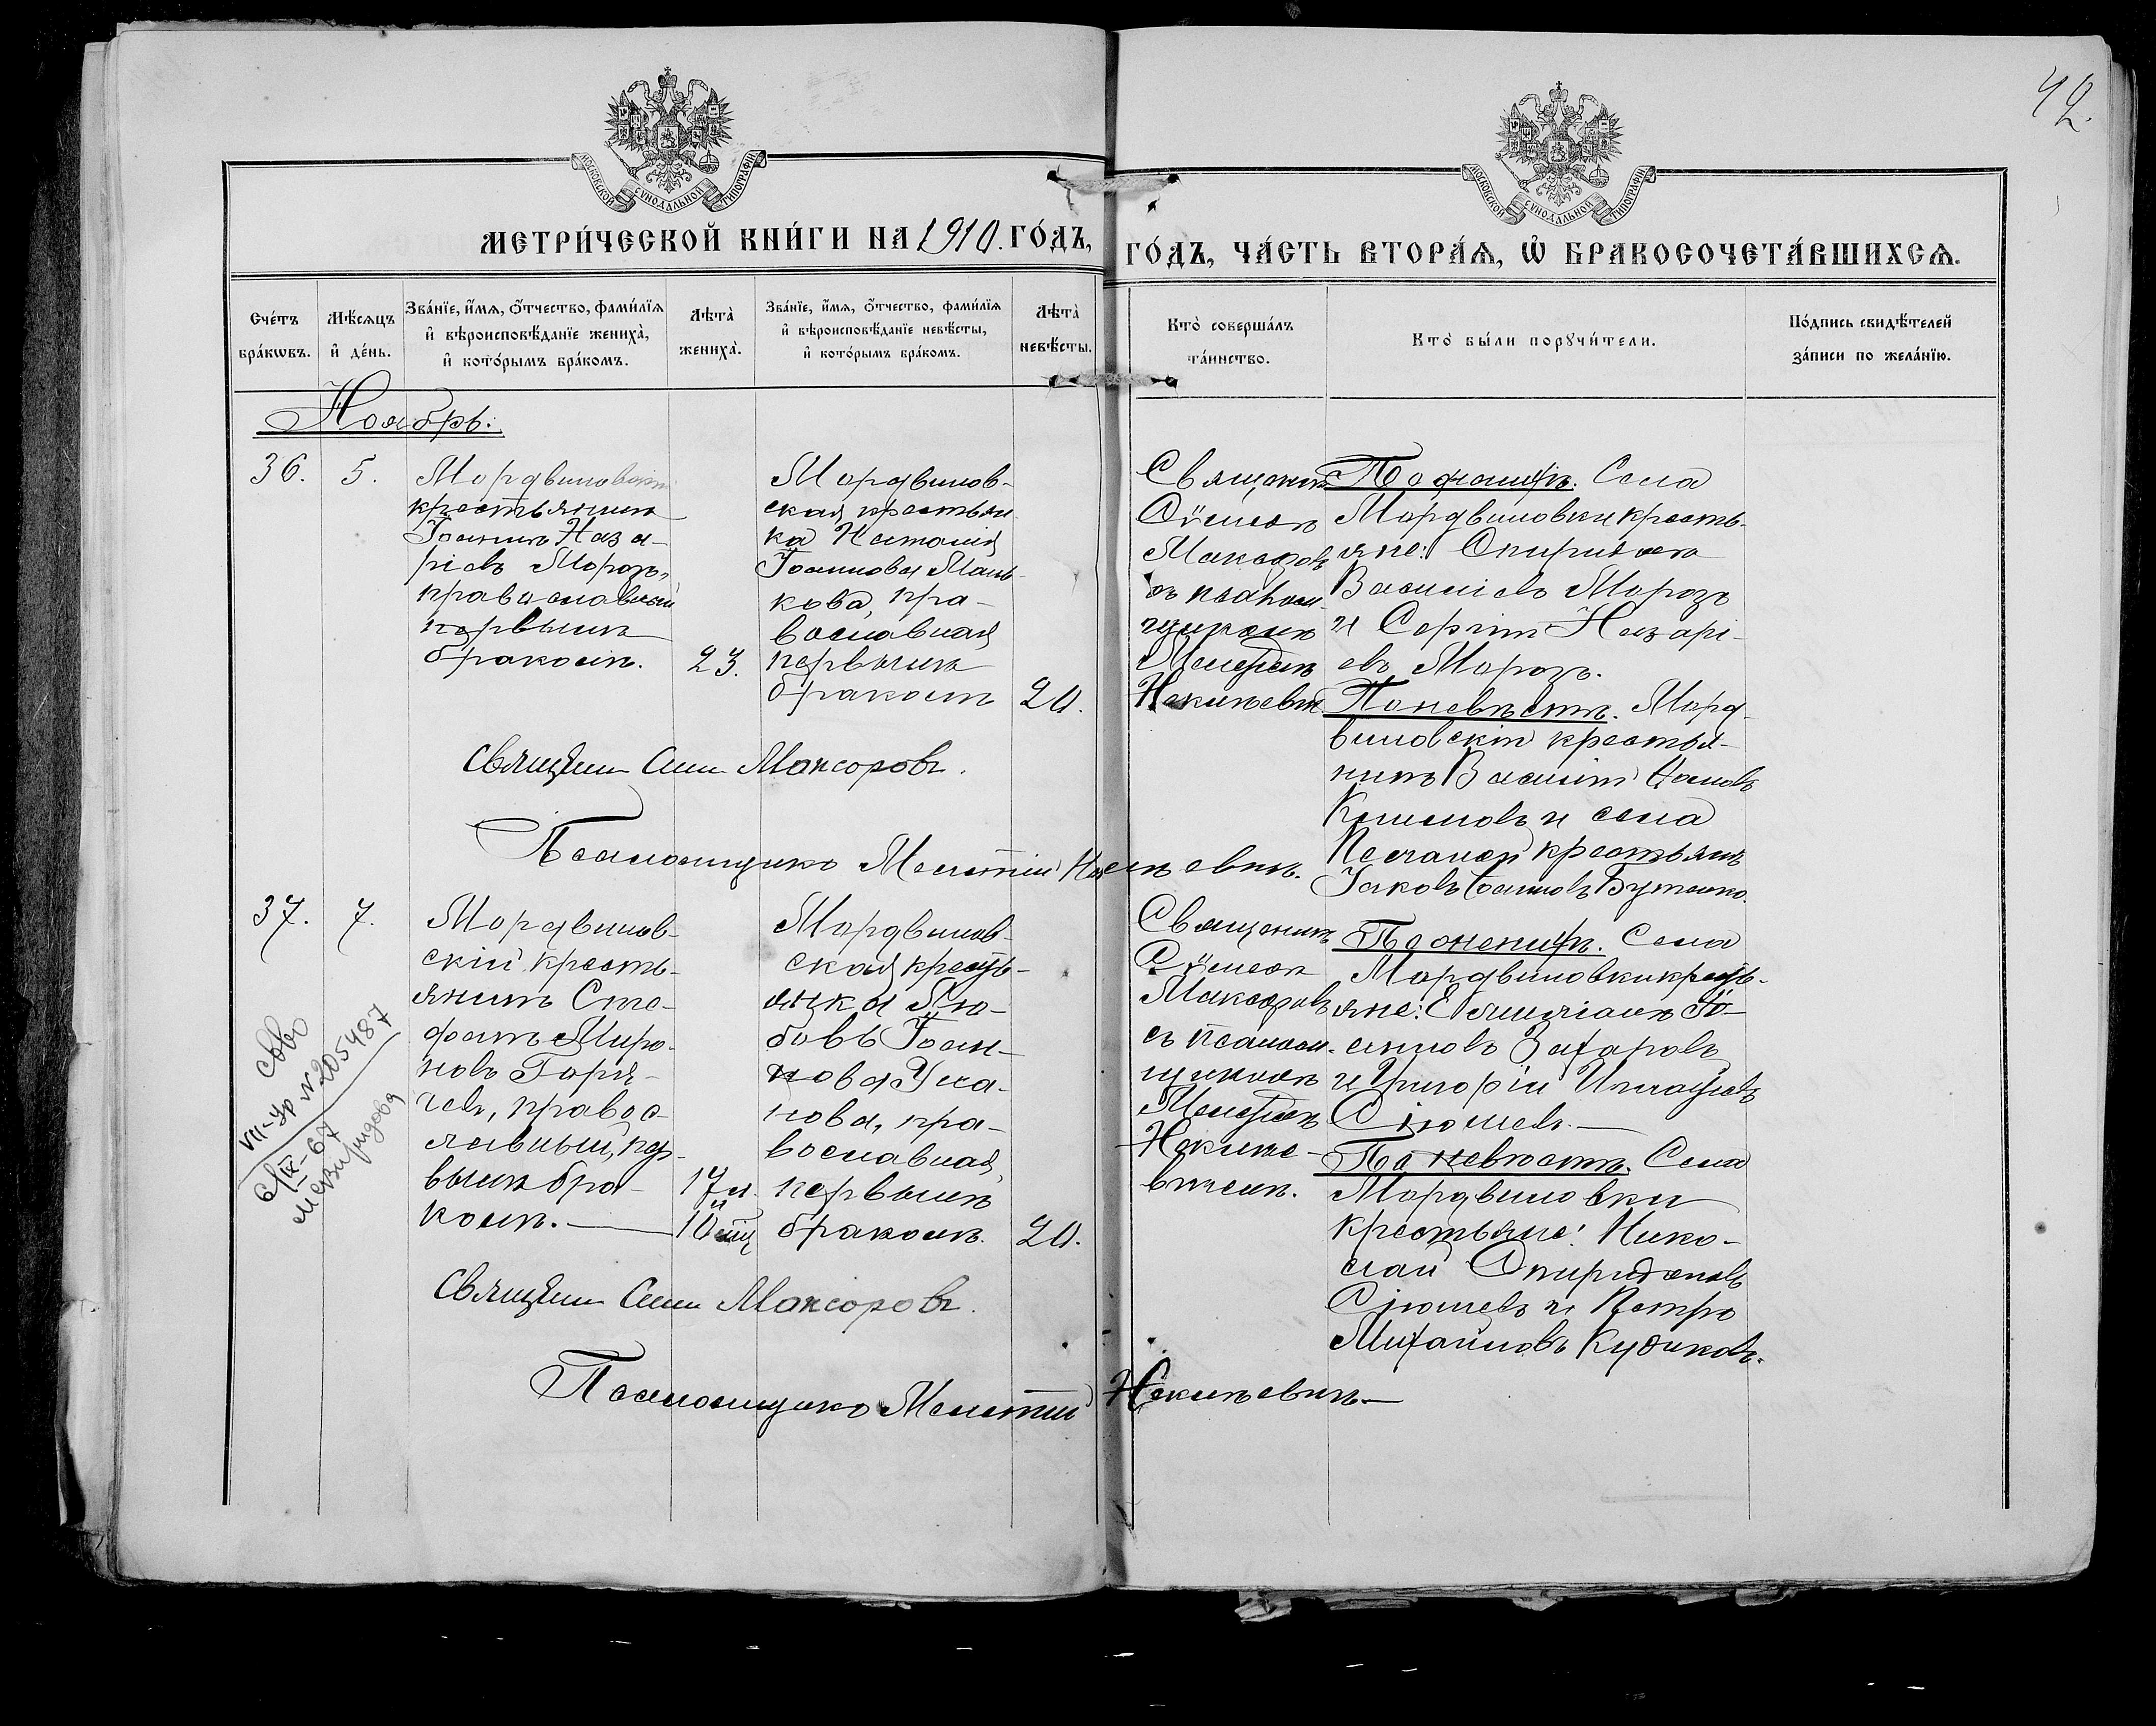 42.
МОСКОВСКОЙ СУНОДАЛЬНОЙ ТИПОГРАФІИ
МОСКОВСКОЙ СУНОДАЛЬНОЙ ТИПОГРАФІИ
МЕТРИ́ЧЕСКОЙ КНИ́ГИ НА 1910. ГО́ДЪ,
ГО́ДЪ, ЧА́СТЬ ВТОРА́Ѧ, Ѡ҆ БРАКОСОЧЕТА́ВШИХСѦ.
Сче́тъ
бра́кѡвъ.
Мѣ́сѧцъ
и҆ де́нь.
Зва́нїе, и҆́мѧ, ѻ҆́тчество, фами́лїѧ
и҆ вѣроисповѣ́данїе жениха̀,
и҆ кото́рымъ бра́комъ.
Лѣта̀
жениха̀.
Зва́нїе, и҆́мѧ, ѻ҆́тчество, фами́лїѧ
и҆ вѣроисповѣ́данїе невѣ́сты,
и҆ кото́рымъ бра́комъ.
Лѣта̀
невѣ́сты.
Кто̀ соверша́лъ
та́инство.
Кто̀ бы́ли порꙋчи́тели.
По́дпись свидѣ́телей
за́писи по жела́нїю.
Ноябрь.
36.
5.
Мордвиновскій
крестьянинъ
Іоаннъ Наза-
ріевъ Морозъ,
православный
первымъ
бракомъ.
23.
Мордвинов-
ская крестьян
ка Наталія
Іоаннова Мань-
кова, пра-
вославная
первымъ
бракомъ
20.
Священникъ
Сѵмеонъ
Макаровъ
съ псалом-
щикомъ
Мелетіемъ
По женихѣ. Села
Мордвиновки кресть-
яне: Спиридонъ
Василіевъ Морозъ
и Сергій Назарі-
евъ Морозъ.
По невѣстѣ. Морд-
виновскій крестья-
нинъ Василій
Климовъ и села
Песчаной крестьян.
Іаковъ Іоанновъ Бутенко.
Священник Сим Макаровъ.
Псаломщикъ Мелетій
37.
7.
Мордвинов-
скій кресть-
янинъ Сте-
фанъ Миро-
новъ Горя-
чев, правос-
лавный, пер-
вымъ бра-
комъ.
17 л.
и
10 мц
Мордвинов-
ская кресть-
янка Лю-
бовь Іоан-
нова Ула-
нова, пра-
вославная,
первымъ
бракомъ.
20.
Священникъ
Сѵмеонъ
Макаровъ
съ псалом-
щикомъ
Мелетіемъ
По женихѣ. Села
Мордвиновки кресть-
яне: Емиліанъ Іо-
анновъ Захаровъ
и Григорій Игнатіевъ
По невѣстѣ. Села
Мордвиновки
крестьяне: Нико-
лай Спиридоновъ
и Петръ
Михайловъ Кудиновъ.
Священник Сим Макаровъ.
Псаломщикъ Мелетій
св-во
VII-УР № 205487
6/IX-67